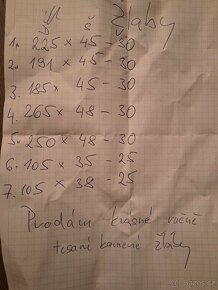 Žlaby
D Š
1. 225 x 45 - 30
2. 191 x 45 - 30
3. 185 x 45 - 30
4. 265 x 48 - 30
5. 250 x 48 - 30
6. 105 x 35 - 25
7. 105 x 38 - 25
Prodám krásné ručně
tesané kamené žlaby